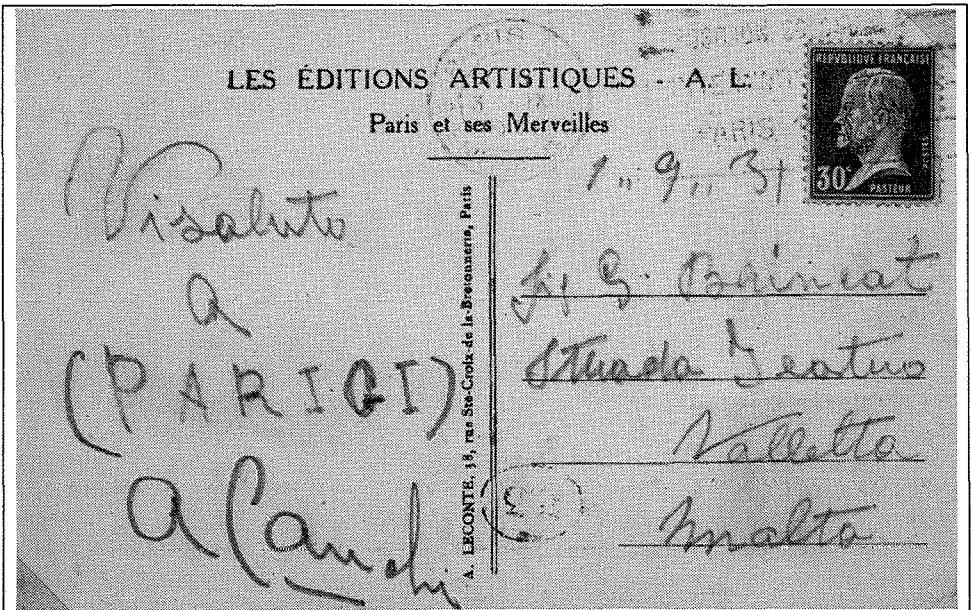 LES ÉDITIONS ARTISTIQUES - A. L.
Paris et ses Merveilles
PARIS
REPUBLIQUE FRANÇAISE
POSTES
30c
PASTEUR
Vi saluto
a
(PARIGI)
A. LECONTE, 38, rue Ste-Croix-de-la-Bretonnerie, Paris
1„9„31
G. Brincat
Strada Teatro
Valletta
Malta